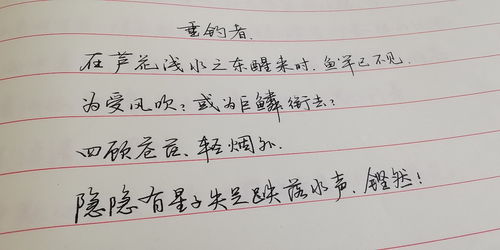 垂钓者.
在芦花浅水之东醒来时.鱼竿已不见.
为受风吹;或为巨鳞衔去;
四顾苍茫、轻烟外.
隐隐有星子失足跌落水声、铿然!